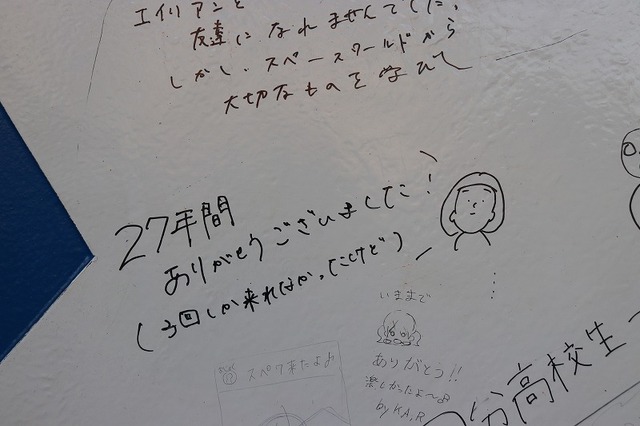 エイリアンと
友達になれませんでした。
しかし、スペースワールドから
大切なものを学びて
27年間
ありがとうございました!
(3回しか来れなかったけど)
いままで
ありがとう!!
楽しかったよ〜♪
by KA,R
スペワ来たよ♪
分高校生